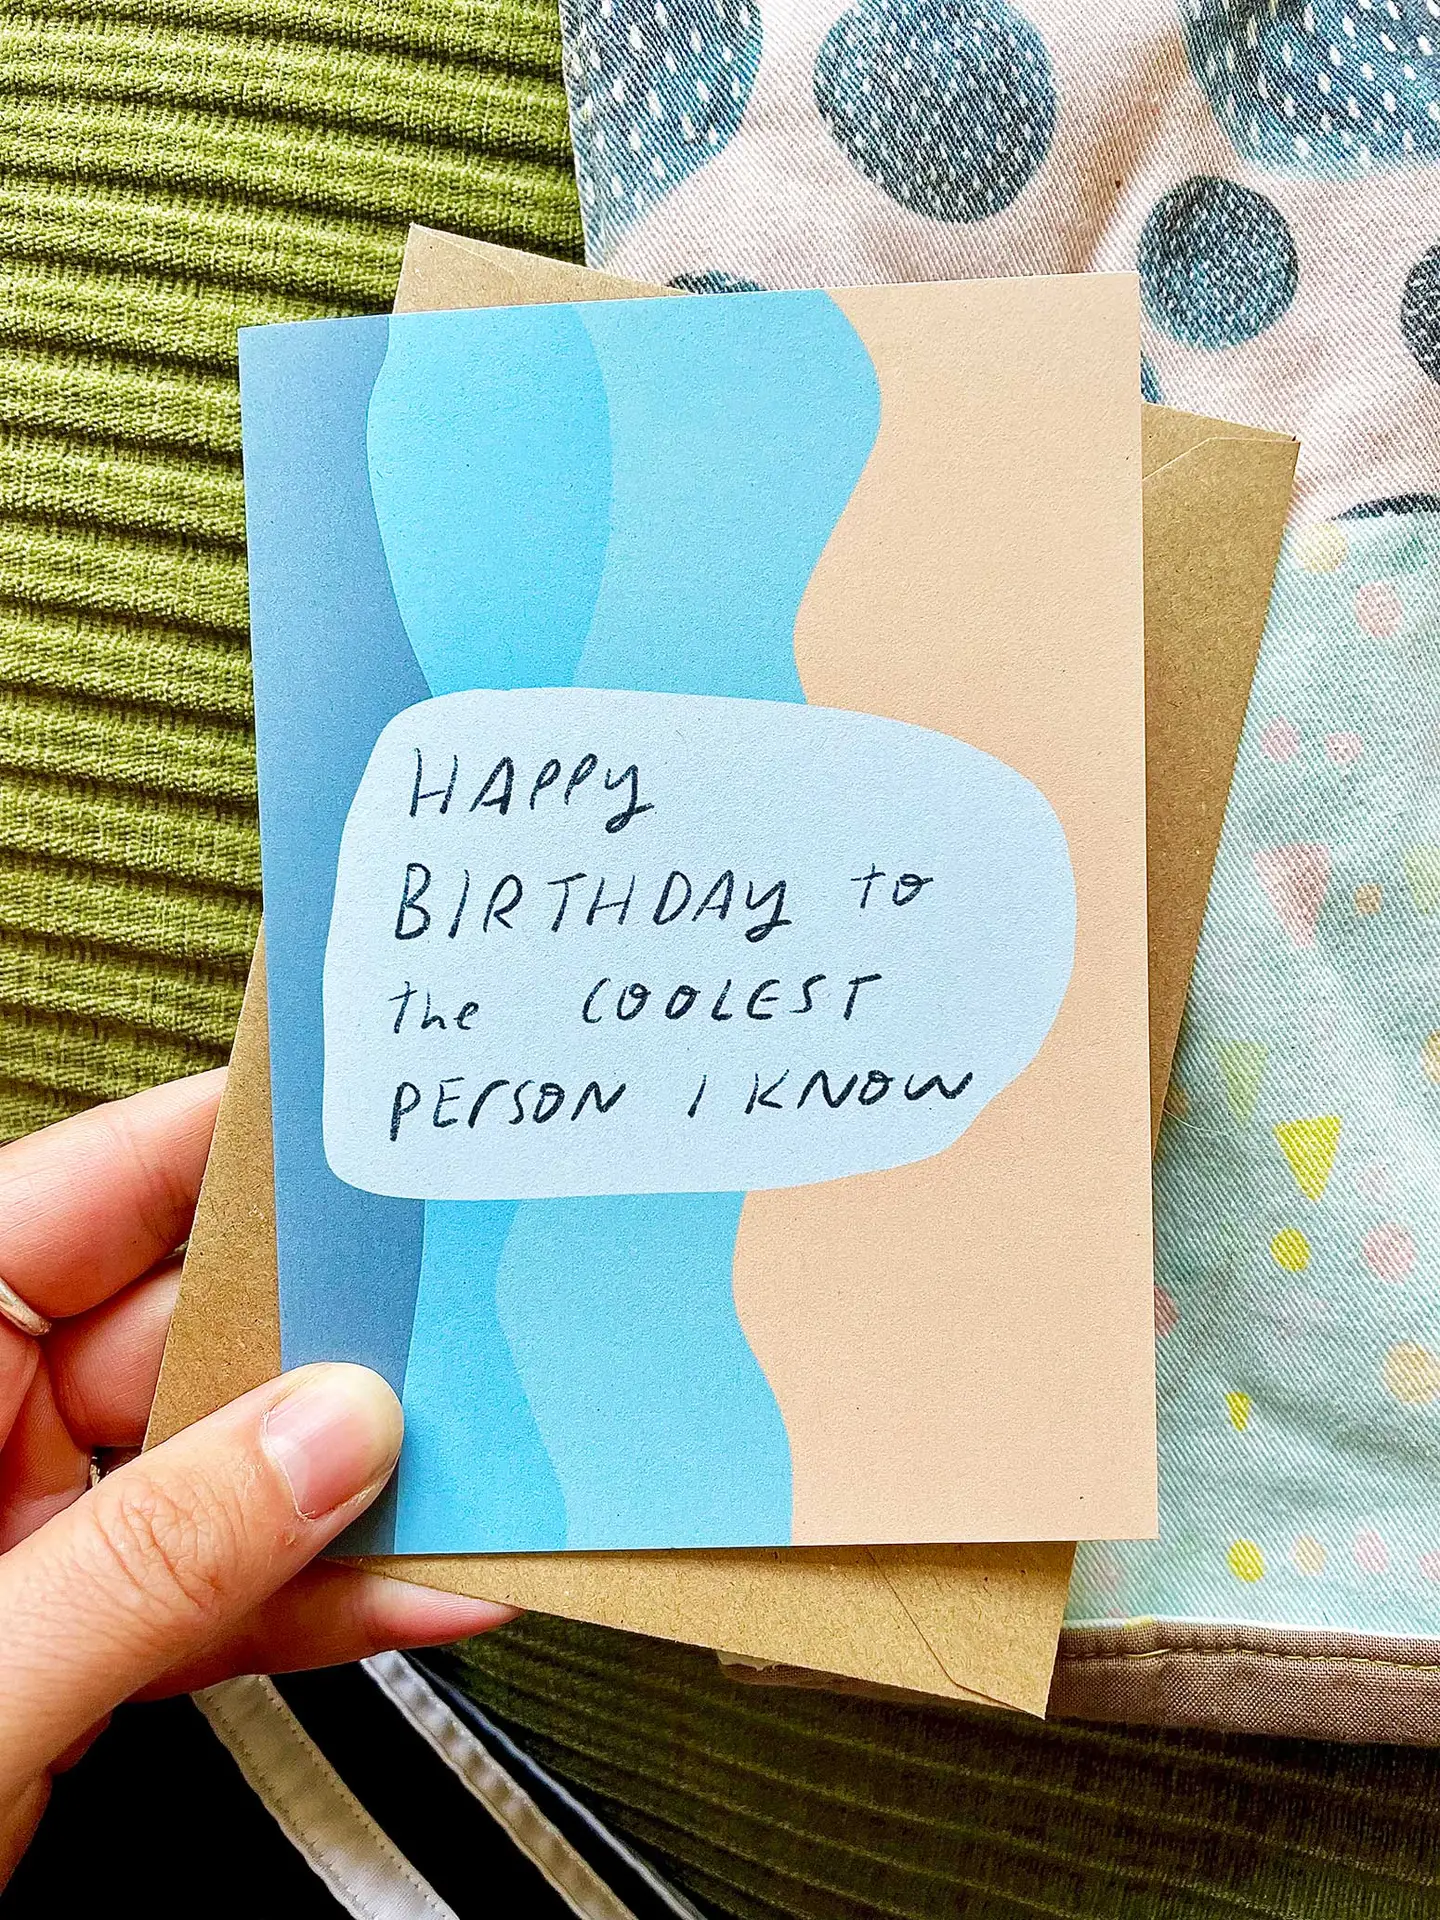 HAPPY
BIRTHDAY to
the COOLEST
PERSON I KNOW